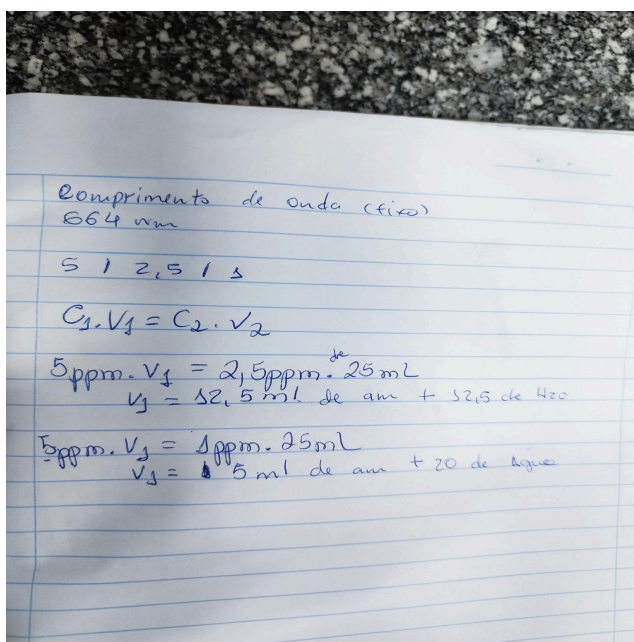 Comprimento de onda (fixo)
664 nm
5 / 2,5 / 1
C1.V1 = C2.V2
5ppm.V1 = 2,5ppm.de 25mL
V1 = 12,5 ml de am + 12,5 de H2O
5ppm.V1 = 1ppm.25mL
V1 = 5 ml de am + 20 de água